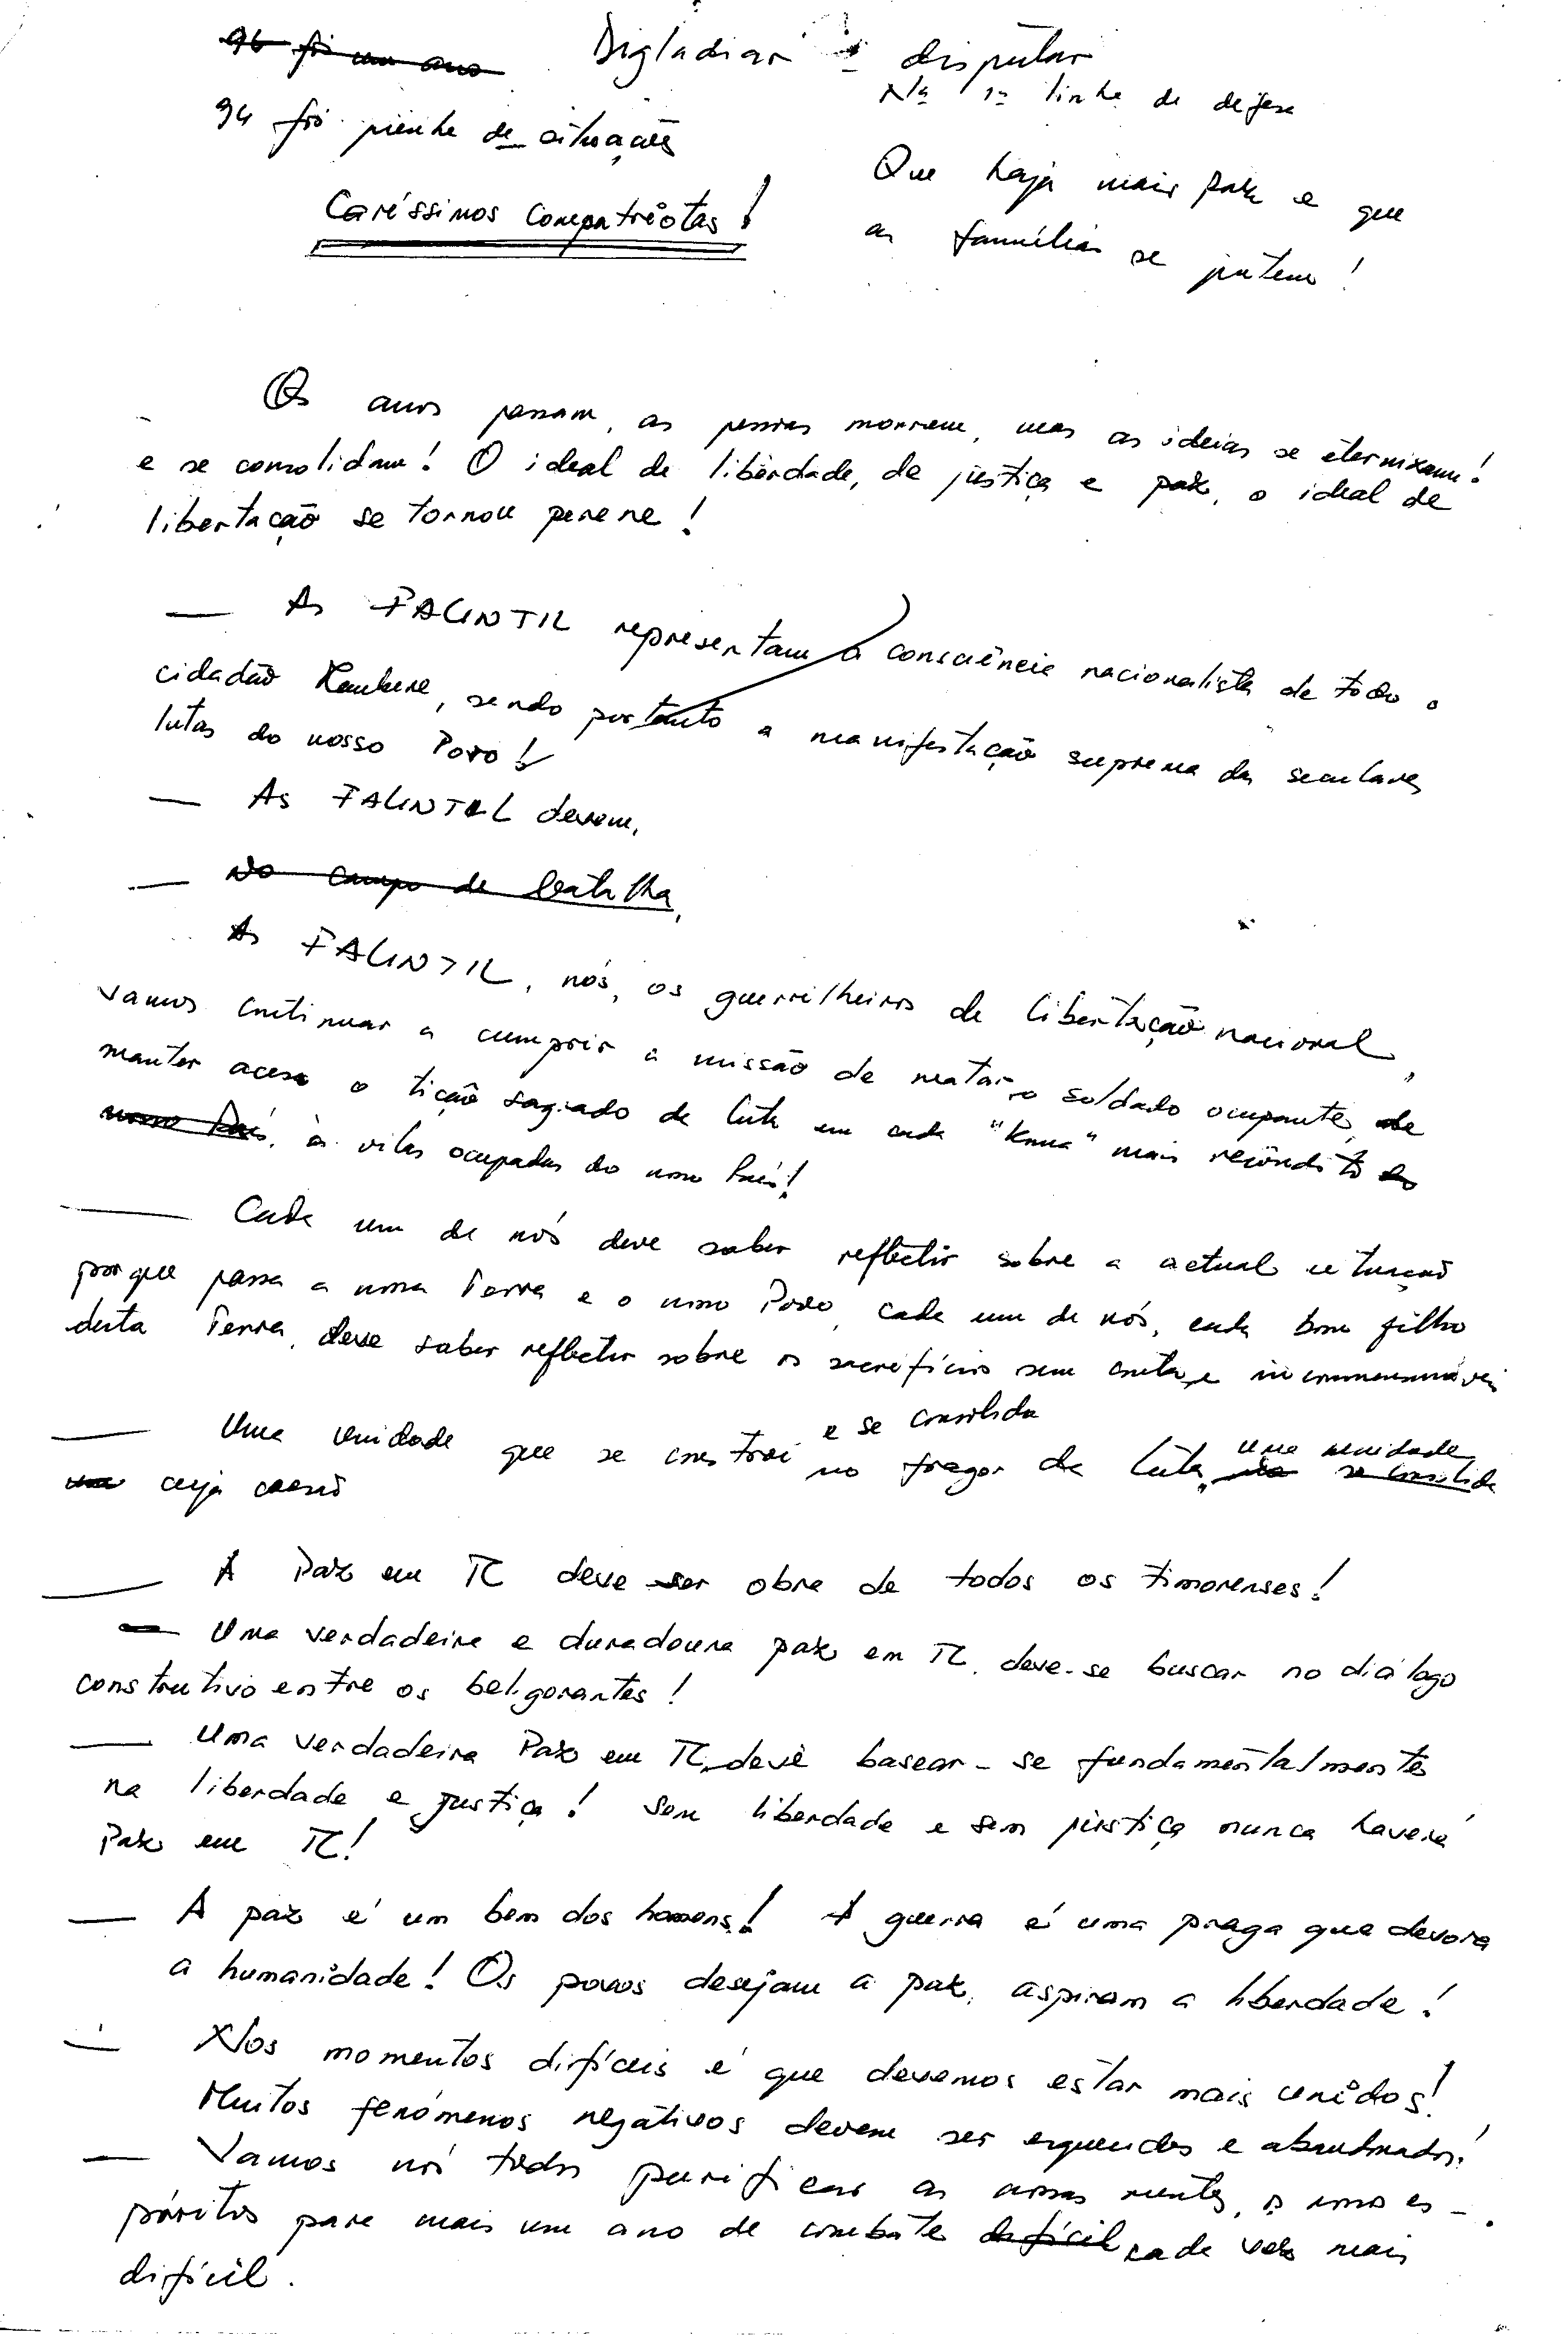 96 foi um ano
Digladiar = disputar
Na 1ª linha de defesa
94 foi pleno de situações
Que haja mais paz e que
as famílias se juntem!
Caríssimos Compatriotas!
Os anos passam, as pessoas morrem, mas as ideias se eternizam!
e se consolidam! O ideal de liberdade, de justiça e paz, o ideal de
libertação se tornou perene!
— As FALINTIL representam a consciência nacionalista de todo o
cidadão Maubere, sendo portanto a manifestação suprema das seculares
lutas do nosso Povo!
— As FALINTIL devem,
— No campo de batalha,
As FALINTIL, nós, os guerrilheiros de libertação nacional,
vamos continuar a cumprir a missão de matar o soldado ocupante, de
manter aceso o tição sagrado da luta em cada "knua" mais recôndito do
nosso País, às vilas ocupadas do nosso País!
— Cada um de nós deve saber reflectir sobre a actual situação
porque passa a nossa Terra e o nosso Povo, cada um de nós, cada bom filho
desta Terra, deve saber reflectir sobre os sacrifícios sem conta e incomensuráveis
— Uma Unidade que se constroi e se consolida no fragor da luta, uma unidade se consolida
cuja coesão
— A Paz em TL deve ser obra de todos os timorenses!
— Uma verdadeira e duradoura paz em TL, deve-se buscar no diálogo
construtivo entre os beligerantes!
— Uma verdadeira Paz em TL, deve basear-se fundamentalmente
na liberdade e justiça! Sem liberdade e sem justiça nunca haverá
Paz em TL!
— A paz é um bem dos homens! A guerra é uma praga que devora
a humanidade! Os povos desejam a paz, aspiram a liberdade!
— Nos momentos difíceis é que devemos estar mais unidos!
Muitos fenómenos negativos devem ser esquecidos e abandonados!
— Vamos nós todos purificar as nossas mentes, os nossos es-
píritos para mais um ano de combate difícil cada vez mais
difícil.